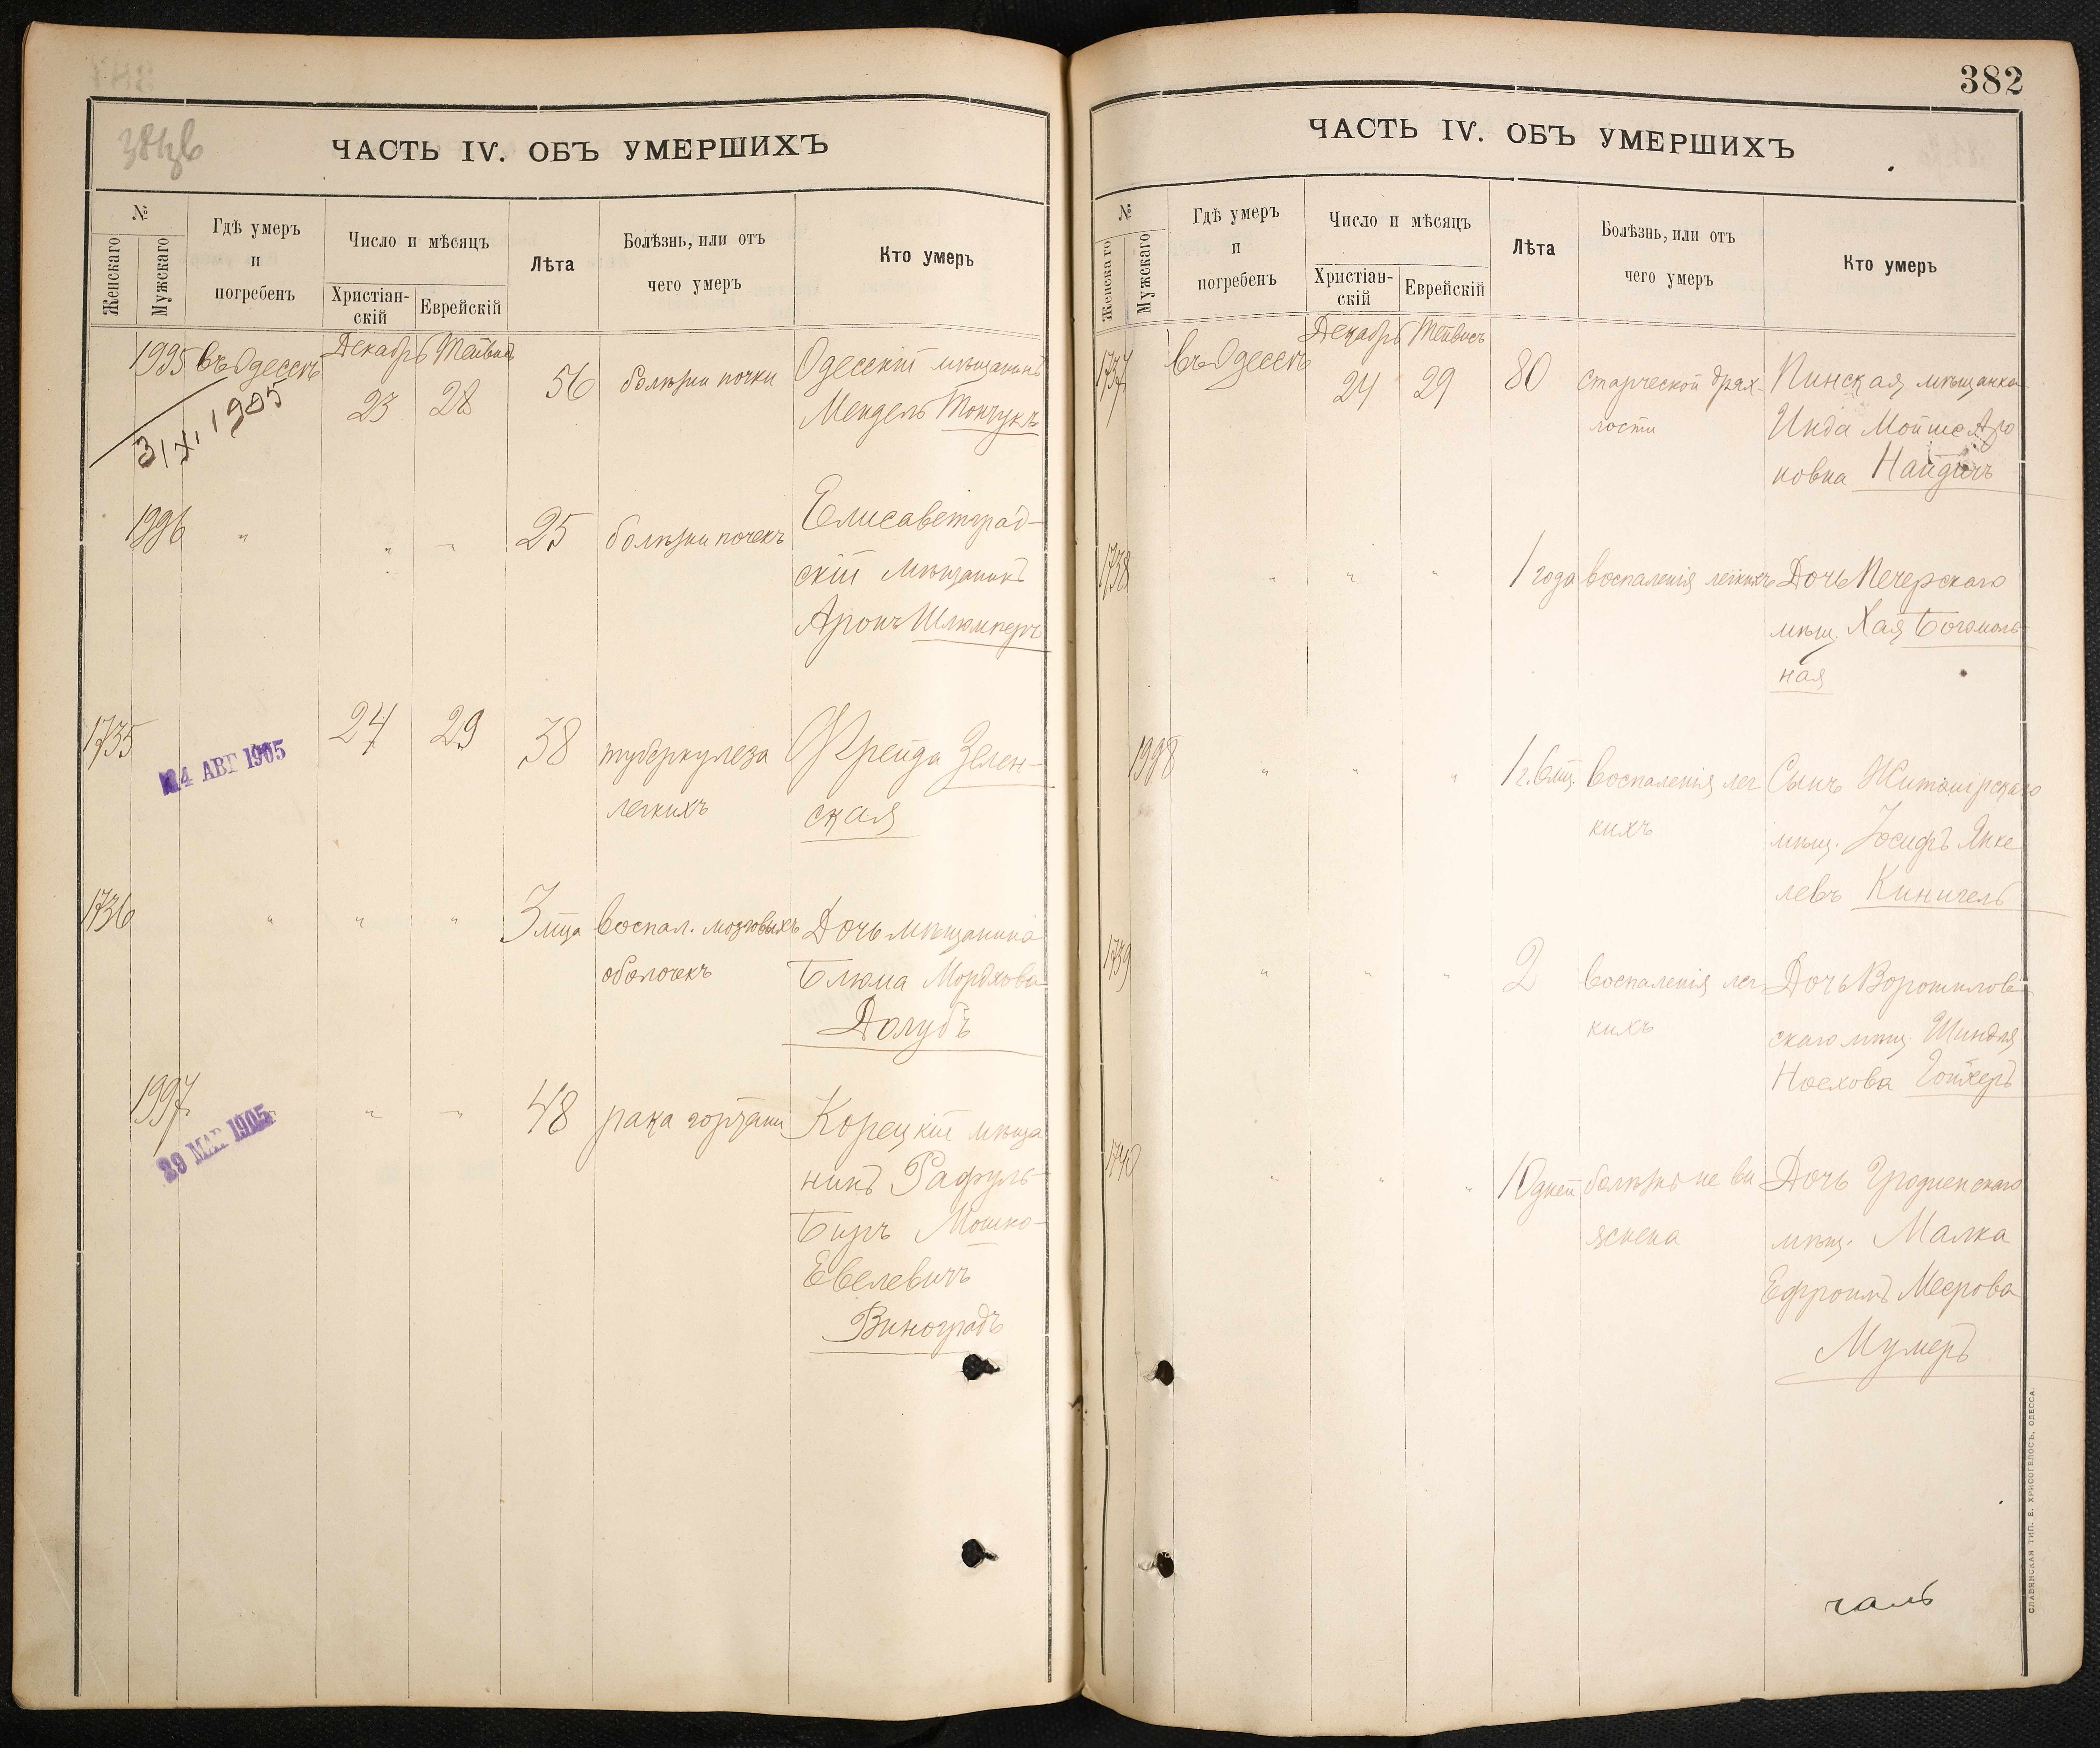 381об
ЧАСТЬ IV. ОБЪ УМЕРШИХЪ
№
Женскаго
Мужскаго
Гдѣ умеръ
и
погребенъ
Число и мѣсяцъ
Христіан-
скій
Еврейскій
Лѣта
Болѣзнь, или отъ
чего умеръ
Кто умеръ
1995 въ Одессѣ Декабрь 23 Тейвисъ 28 56 болѣзни почки Одесскій мѣщанинъ
Мендель Тончукъ
3/XI 1905
1996 " " " 25 болѣзни почекъ Елисаветград-
скій мѣщанинъ
Аронъ Шлюмперъ
1735 24 29 38 туберкулеза Фрейда Зелен-
легкихъ ская
24 АВГ 1905
1736 " " " 3 мца воспал. мозговыхъ Дочь мѣщанина
оболочекъ Блюма Мордхова
Долубъ
1997 " " 48 рака гортани Корецкій мѣща
нинъ Рафуль-
Биръ Мошко-
Евелевичъ
Виноградъ
29 МАР 1905
382
ЧАСТЬ IV. ОБЪ УМЕРШИХЪ
№
Женскаго
Мужскаго
Гдѣ умеръ
и
погребенъ
Число и мѣсяцъ
Христіан-
скій
Еврейскій
Лѣта
Болѣзнь, или отъ
чего умеръ
Кто умеръ
1737 въ Одессѣ Декабрь 24 Тейвисъ 29 80 старческой дрях- Пинская мѣщанка
лости Инда Мойше Аро
новна Найдичъ
1738 " " " 1 года воспаленія легкихъ Дочь Печерскаго
мѣщ. Хая Богомоль-
ная
1998 " " " 1 г. 6 мц. воспаленія лег Сынъ Житомірскаго
кихъ мѣщ. Іосифъ Янке
левъ Киничель
1739 " " " 2 воспаленія лег Дочь Ворошилов-
кихъ скаго мѣщ. Шиндля
Ноехова Гойхеръ
1740 " " " 10 дней болѣзнь не вы Дочь Гродненскаго
яснена мѣщ. Малка
Ефроимъ Меерова
Мумеръ
чалъ
СЛАВЯНСКАЯ ТИП. Е. ХРИСОГЕЛОСЪ, ОДЕССА.